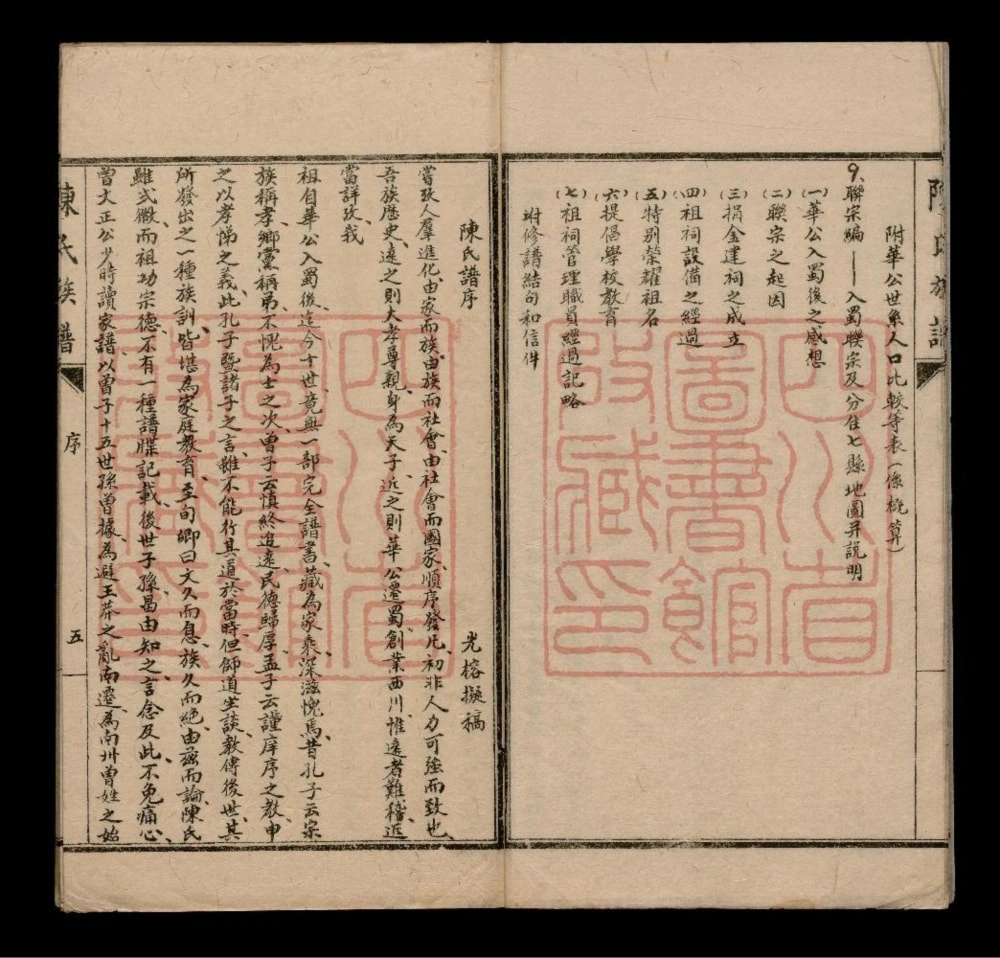 陳氏族譜
附華公世系人口比較等表（像概算）
9、聯宗編——入蜀聯宗及分住七縣地圖并說明
（一）華公入蜀後之感想
（二）聯宗之起因
（三）捐金建祠之成立
（四）祖祠設備之經過
（五）特别榮耀祖名
（六）提倡學校教育
（七）祖祠管理職員經過記略
坿修譜結句和信件
四川省
圖書館
收藏印
陳氏譜序
光榕擬稿
嘗攷人羣進化、由家而族、由族而社會、由社會而國家順序發凡、初非人力可強而致也、
吾族歷史、遠之則大孝尊親、身為天子、近之則華公遷蜀、創業西川、惟遠者難稽、近
當詳攷、我
祖自華公入蜀後、迄今十世、竟無一部完全譜書、藏為家乘、深滋愧焉、昔孔子云宗
族稱孝、鄉黨稱弟、不愧為士之次、曾子云慎終追遠、民德歸厚、孟子云謹庠序之教、申
之以孝悌之義、此孔子暨諸子之言、雖不能行其道於當時、但師道坐談、教傳後世、其
所發出之一種族訓、皆堪為家庭教育、至旬卿曰文久而息、族久而絕、由茲而論、陳氏
雖式微、而祖功宗德、不有一種譜牒記載、後世子孫曷由知之、言念及此、不免痛心、
曾文正公少時讀家譜、以曾子十五世孫曾據、為避王莽之亂、南遷、為南州曾姓之始
四川省
圖書館
收藏印
陳氏族譜
序
五